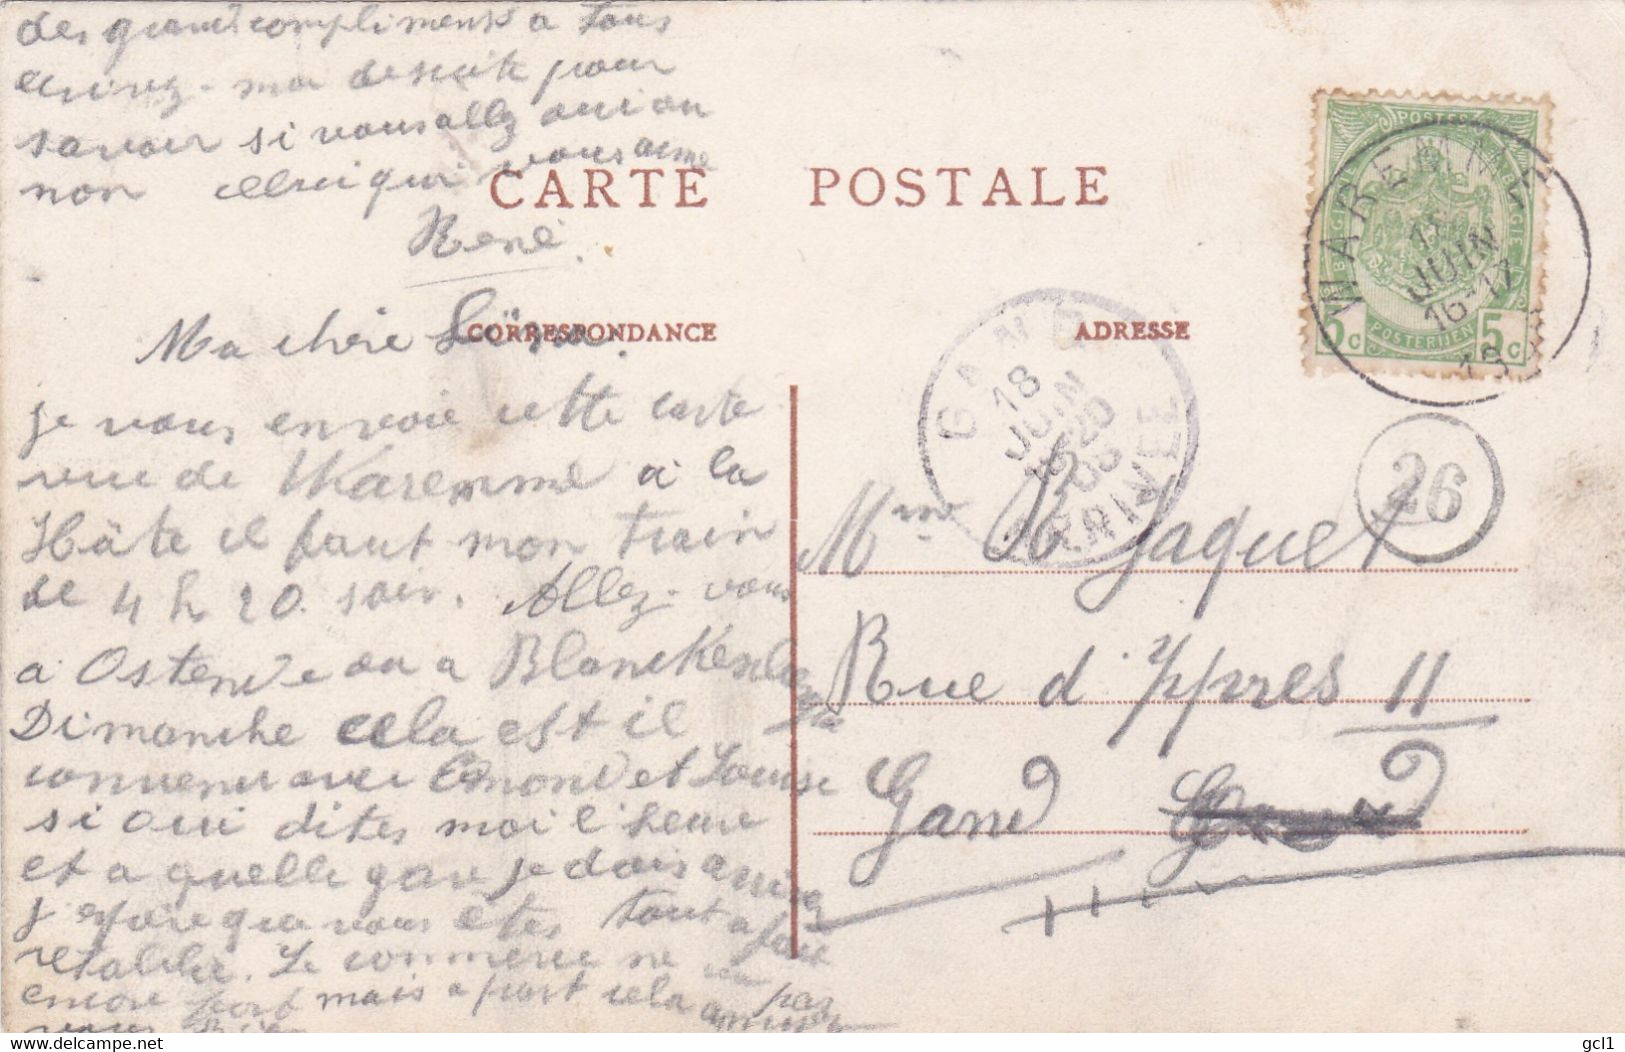 des grands compliments a tous
écrivez-moi de suite pour
savoir si vous allez oui ou
non celui qui vous aime
René.
CARTE POSTALE
CORRESPONDANCE
ADRESSE
Ma chère
je vous envoie cette carte
vue de Waremme a la
Hâte il faut mon train
de 4 h 20 soir. Allez-vous
a Ostende ou a Blanckenberghe
Dimanche cela est il
convenu avec Edmond et Louise
si oui dites moi l'heure
et a quelle gare je dois arriver
j'espère que vous etes tout a fait
retablie. Le commerce ne va pas
encore fort mais a part cela
vous
WAREMME
JUIN
16-17
BELGIQUE
POSTES
BELGIE
POSTERIJEN
5c 5c
GAND
18
JUIN
ARRIVÉE
26
Mme Jaquet
Rue d'Ypres 11
Gand
www.delcampe.net
gcl1